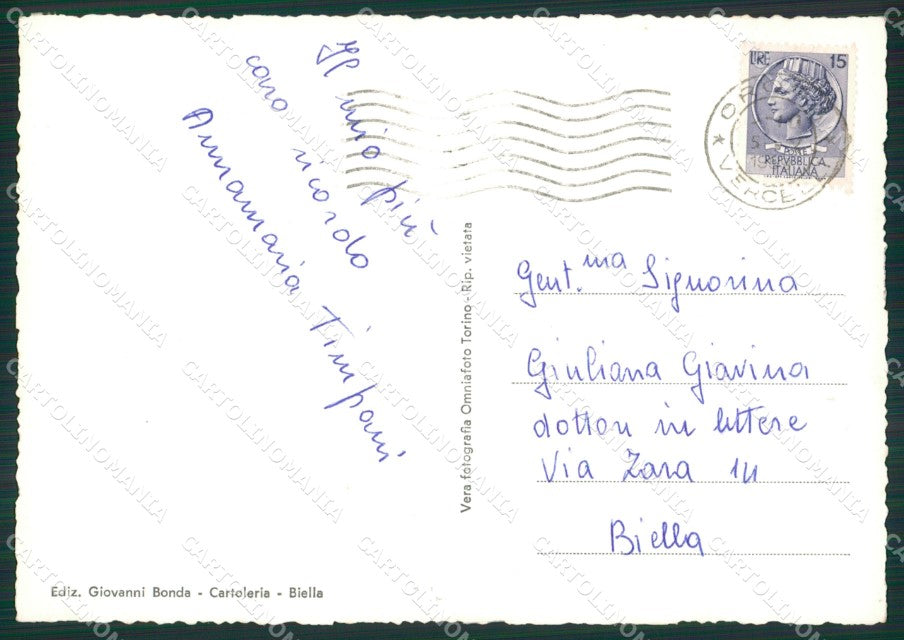 Il mio più
caro ricordo
Annamaria Timpani
LIRE 15
POSTE
REPVBBLICA
ITALIANA
Vera fotografia Omniafoto Torino - Rip. vietata
Gent.ma Signorina
Giuliana Giavina
dottor in lettere
Via Zara 14
Biella
Ediz. Giovanni Bonda - Cartoleria - Biella
CARTOLINOMANIA